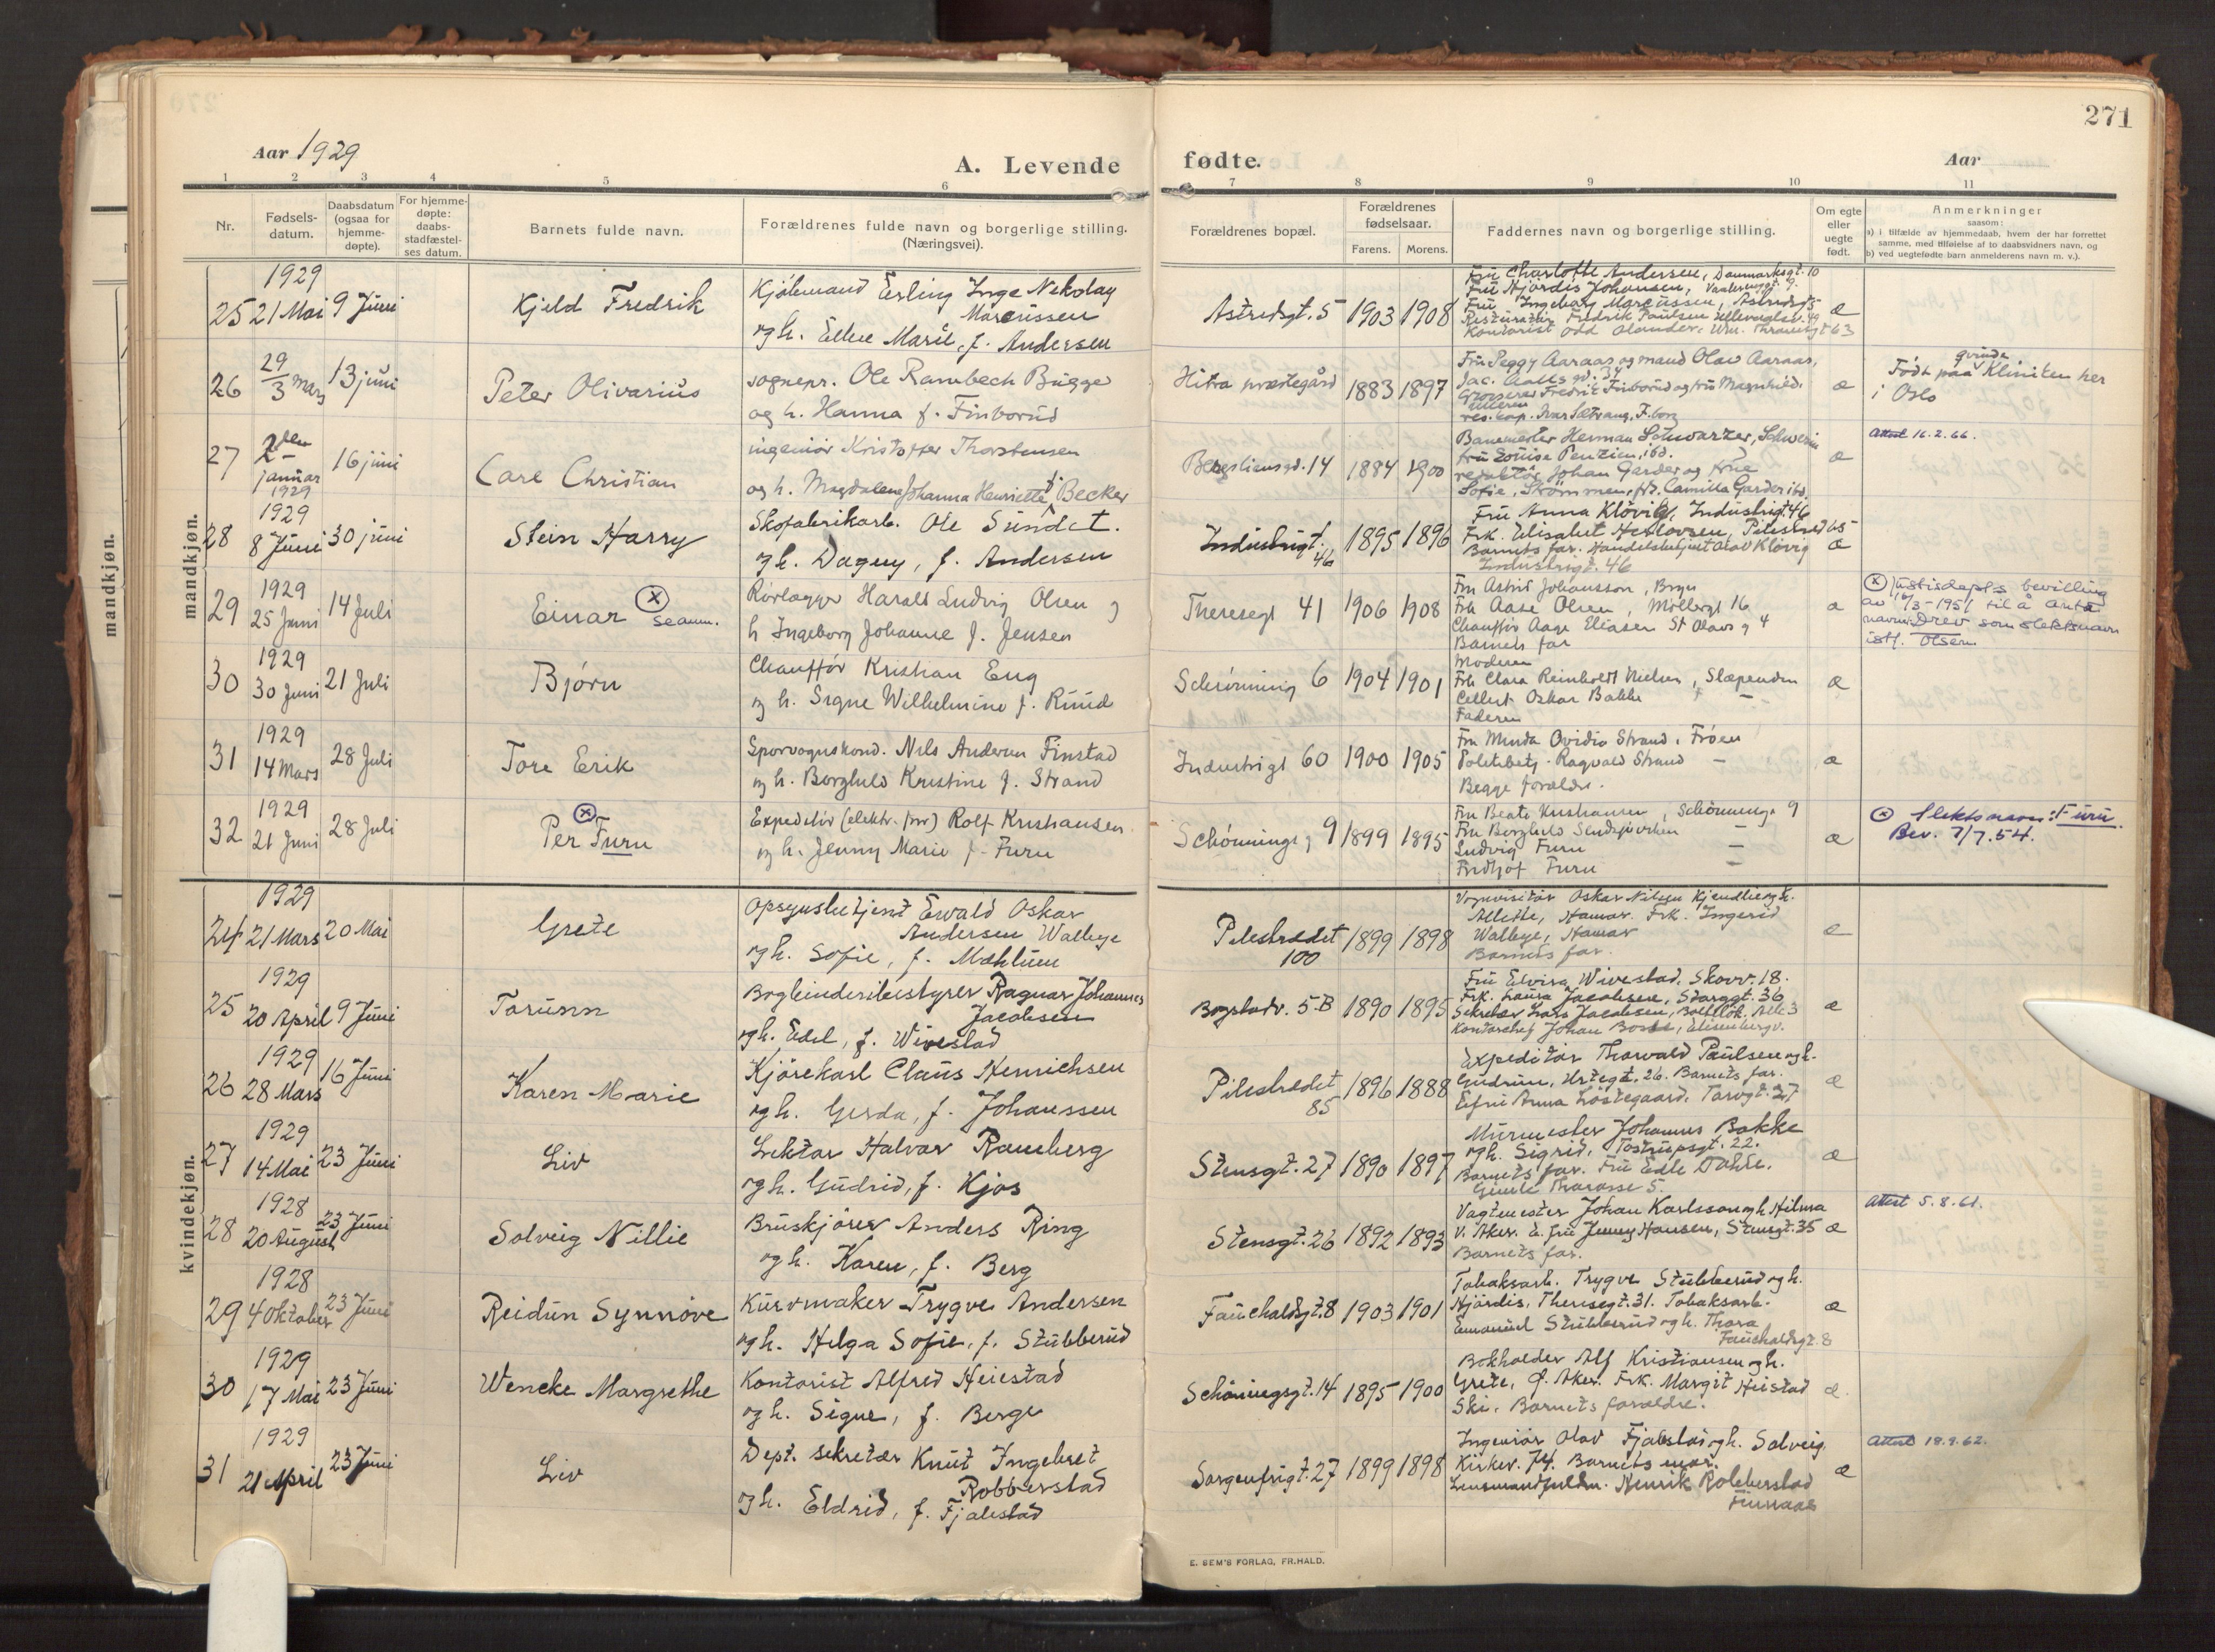 271
Aar 1929
A. Levende
fødte.
Aar
1 2 3 4 5 6 7 8 9 10 11
Nr.
Fødsels-
datum.
Daabsdatum
(ogsaa for
hjemme-
døpte).
For hjemme-
døpte:
daabs-
stadfæstel-
ses datum.
Barnets fulde navn.
Forældrenes fulde navn og borgerlige stilling.
(Næringsvei).
Forældrenes bopæl.
Forældrenes
fødselsaar.
Farens. Morens.
Faddernes navn og borgerlige stilling.
Om egte
eller
uegte
født.
Anmerkninger
saasom:
a) i tilfælde av hjemmedaab, hvem der har forrettet
samme, med tilføielse af to daabsvidners navn, og
b) ved uegtefødte barn anmelderens navn m. v.).
mandkjøn.
mandkjøn.
1929
25 21 Mai 9 Juni
Kjeld Fredrik
Kjølemand Erling Inge Nikolay
Marcussen
og h. Ellen Marie, f. Andersen
Astridsgt. 5 1903 1908
Fru Charlotte Andersen, Danmarksgt. 10
Fru Hjørdis Johansen,
Fru Ingeborg Marcussen, Astridsgt 5
Fredrik Paulsen Ullevaalsv.
Kontorist Odd Olander, Wm. Thranesgt 63
æ
26 29/3 Mars 13 juni
Peter Olivarius
sognepr. Ole Rambech Bugge
og h. Hanna f. Finborud
Hitra prestegård 1883 1897
Fru Peggy Aaraas og mand Olav Aaraas,
Jac. Aalls gt. 34
Grosserer Fredrik Finborud og fru Magnhild,
Ulleren
res. kap. Ivar Sætrang, F.borg
æ
Født paa kvinde Kliniken her
i Oslo
27 2den januar 1929 16 juni
Carl Christian
ingeniør Kristoffer Thorstensen
og h. Magdalena Johanna Henriette f. Becker
Bergsliensgt. 14 1884 1900
Banemester Herman Schwarzer, Schwerin
fru Louise Penzien, ibd.
redaktør Johan Garder og frue
Sofie, Strømmen, frk. Camilla Garder ibd.
æ
Attest 16.2.66.
1929
28 8 Juni 30 juni
Stein Harry
Skofabrikarb. Ole Sundet.
og h. Dagny, f. Andersen
Industrigt. 46 1895 1896
Fru Anna Kløvig, Industrigt 46
Frk. Elisabet Herlovsen, Pilestredet 65
Barnets far. Handelsbetjent Olav Kløvig
Industrigt. 46
æ
1929
29 25 Juni 14 Juli
Einar ⓧ seanm.
Rørlægger Harald Ludvig Olsen og
h Ingeborg Johanne f. Jensen
Theresegt 41 1906 1908
Fru Astrid Johansson, Bryn
Frk Aase Olsen, Møllergt 16
Chauffør Aage Eliasen St Olavs g 4
Barnets far
æ
ⓧ Justisdepts bevilling
av 16/3-1951 til å anta
navnet Drev som slektsnavn
istf. Olsen
1929
30 30 Juni 21 Juli
Bjørn
Chauffør Kristian Eng
og h. Signe Wilhelmine f. Ruud
Schønning 6 1904 1901
Moderen
Frk Clara Reinholdt Nielsen, Slæpenden
Cellist Oskar Bakke —
Faderen
æ
1929
31 14 Mars 28 Juli
Tore Erik
Sporvognskond. Nils Andersen Finstad
og h. Borghild Kristine f. Strand
Industrigt 60 1900 1905
Fru Minda Ovidia Strand, Frøen
Politibetj. Ragvald Strand —
Begge forældre.
æ
1929
32 21 Juni 28 Juli
ⓧ
Per Furu
Expeditør (elektr. frr) Rolf Kristiansen
og h. Jenny Marie f. Furu
Schønnings g 9 1899 1895
Fru Beate Kristiansen, Schønnings 9
Fru Borghild —
Ludvig Furu —
Fridtjof Furu —
æ
ⓧ Slektsnavn: Furu.
Bev. 7/7.54.
kvindekjøn.
1929
24 21 Mars 20 Mai
Grete
Opsynsbetjent Ewald Oskar
Andersen Walbye
og h. Sofie, f. Mæhlum
Pilestrædet
100
1899 1898
Vognvisitør Oskar Nilsen Kjendlie og h.
Allette, Hamar. Frk. Ingerid
Walbye, Hamar
Barnets far.
æ
1929
25 20 April 9 Juni
Torunn
Bogbinderibestyrer Ragnar Johannes
Jacobsen
og h. Edel, f. Wivestad
Bogstadv. 5-B 1890 1895
Fru Elvira Wivestad, Skovv. 18.
Frk. Laura Jacobsen, Storggt. 36
Sekretær Lars Jacobsen, Bolteløk. Alle 3
Kontorchef Johan Bosse, Elisenbergv.
æ
1929
26 28 Mars 16 Juni
Karen Marie
Kjørekarl Claus Henrichsen
og h. Gerda, f. Johanssen
Pilestrædet
85
1896 1888
Expeditør Thorvald Paulsen og h.
Gudrun, Urtegt. 26. Barnets far.
Eifru Anna Løstegaard, Torvgt. 27
æ
1929
27 14 Mai 23 Juni
Liv
Lektor Halvor Ramberg
og h. Gudrid, f. Kjos
Stensgt. 27 1890 1897
Murmester Johannes Bakke
og h. Sigrid, Tostrupsgt. 22.
Barnets far. Fru Edle Dahle.
Gimle Tharasse 5.
æ
1928
28 20 August 23 Juni
Solveig Nillie
Bruskjører Anders Ring
og h. Karen, f. Berg
Stensgt. 26 1892 1893
Vagtmester Johan Karlsson og h. Hilma
V. Aker. E. fru Jenny Hansen, Stensgt. 35
Barnets far.
æ
Attest 5.8.61.
1928
29 4 Oktober 23 Juni
Reidun Synnøve
Kurvmaker Trygve Andersen
og h. Helga Sofie, f. Stubberud
Fauchaldsgt. 8 1903 1901
Tobaksarb. Trygve Stubberud og h.
Hjørdis, Theresegt. 31. Tobaksarb.
Emanuel Stubberud og h. Thora
Fauchaldsgt. 8
æ
1929
30 17 Mai 23 Juni
Wencke Margrethe
Kontorist Alfred Heiestad
og h. Signe, f. Berge
Schøningsgt. 14 1895 1900
Bokholder Alf Kristiansen og h.
Grete, Ø. Aker. Frk. Margit Heistad
Ski. Barnets forældre.
æ
1929
31 21 April 23 Juni
Liv
Dept. sekretær Knut Ingebret
Robberstad
og h. Eldrid, f. Fjalestad
Sorgenfrigt. 27 1899 1898
Ingeniør Olav Fjalestad og h. Solveig,
Kirkev. 74. Barnets mor.
Lensmandfuldm. Henrik Robberstad
Finnaas
æ
Attest 18.9.62.
E. SEM'S FORLAG, FR.HALD.